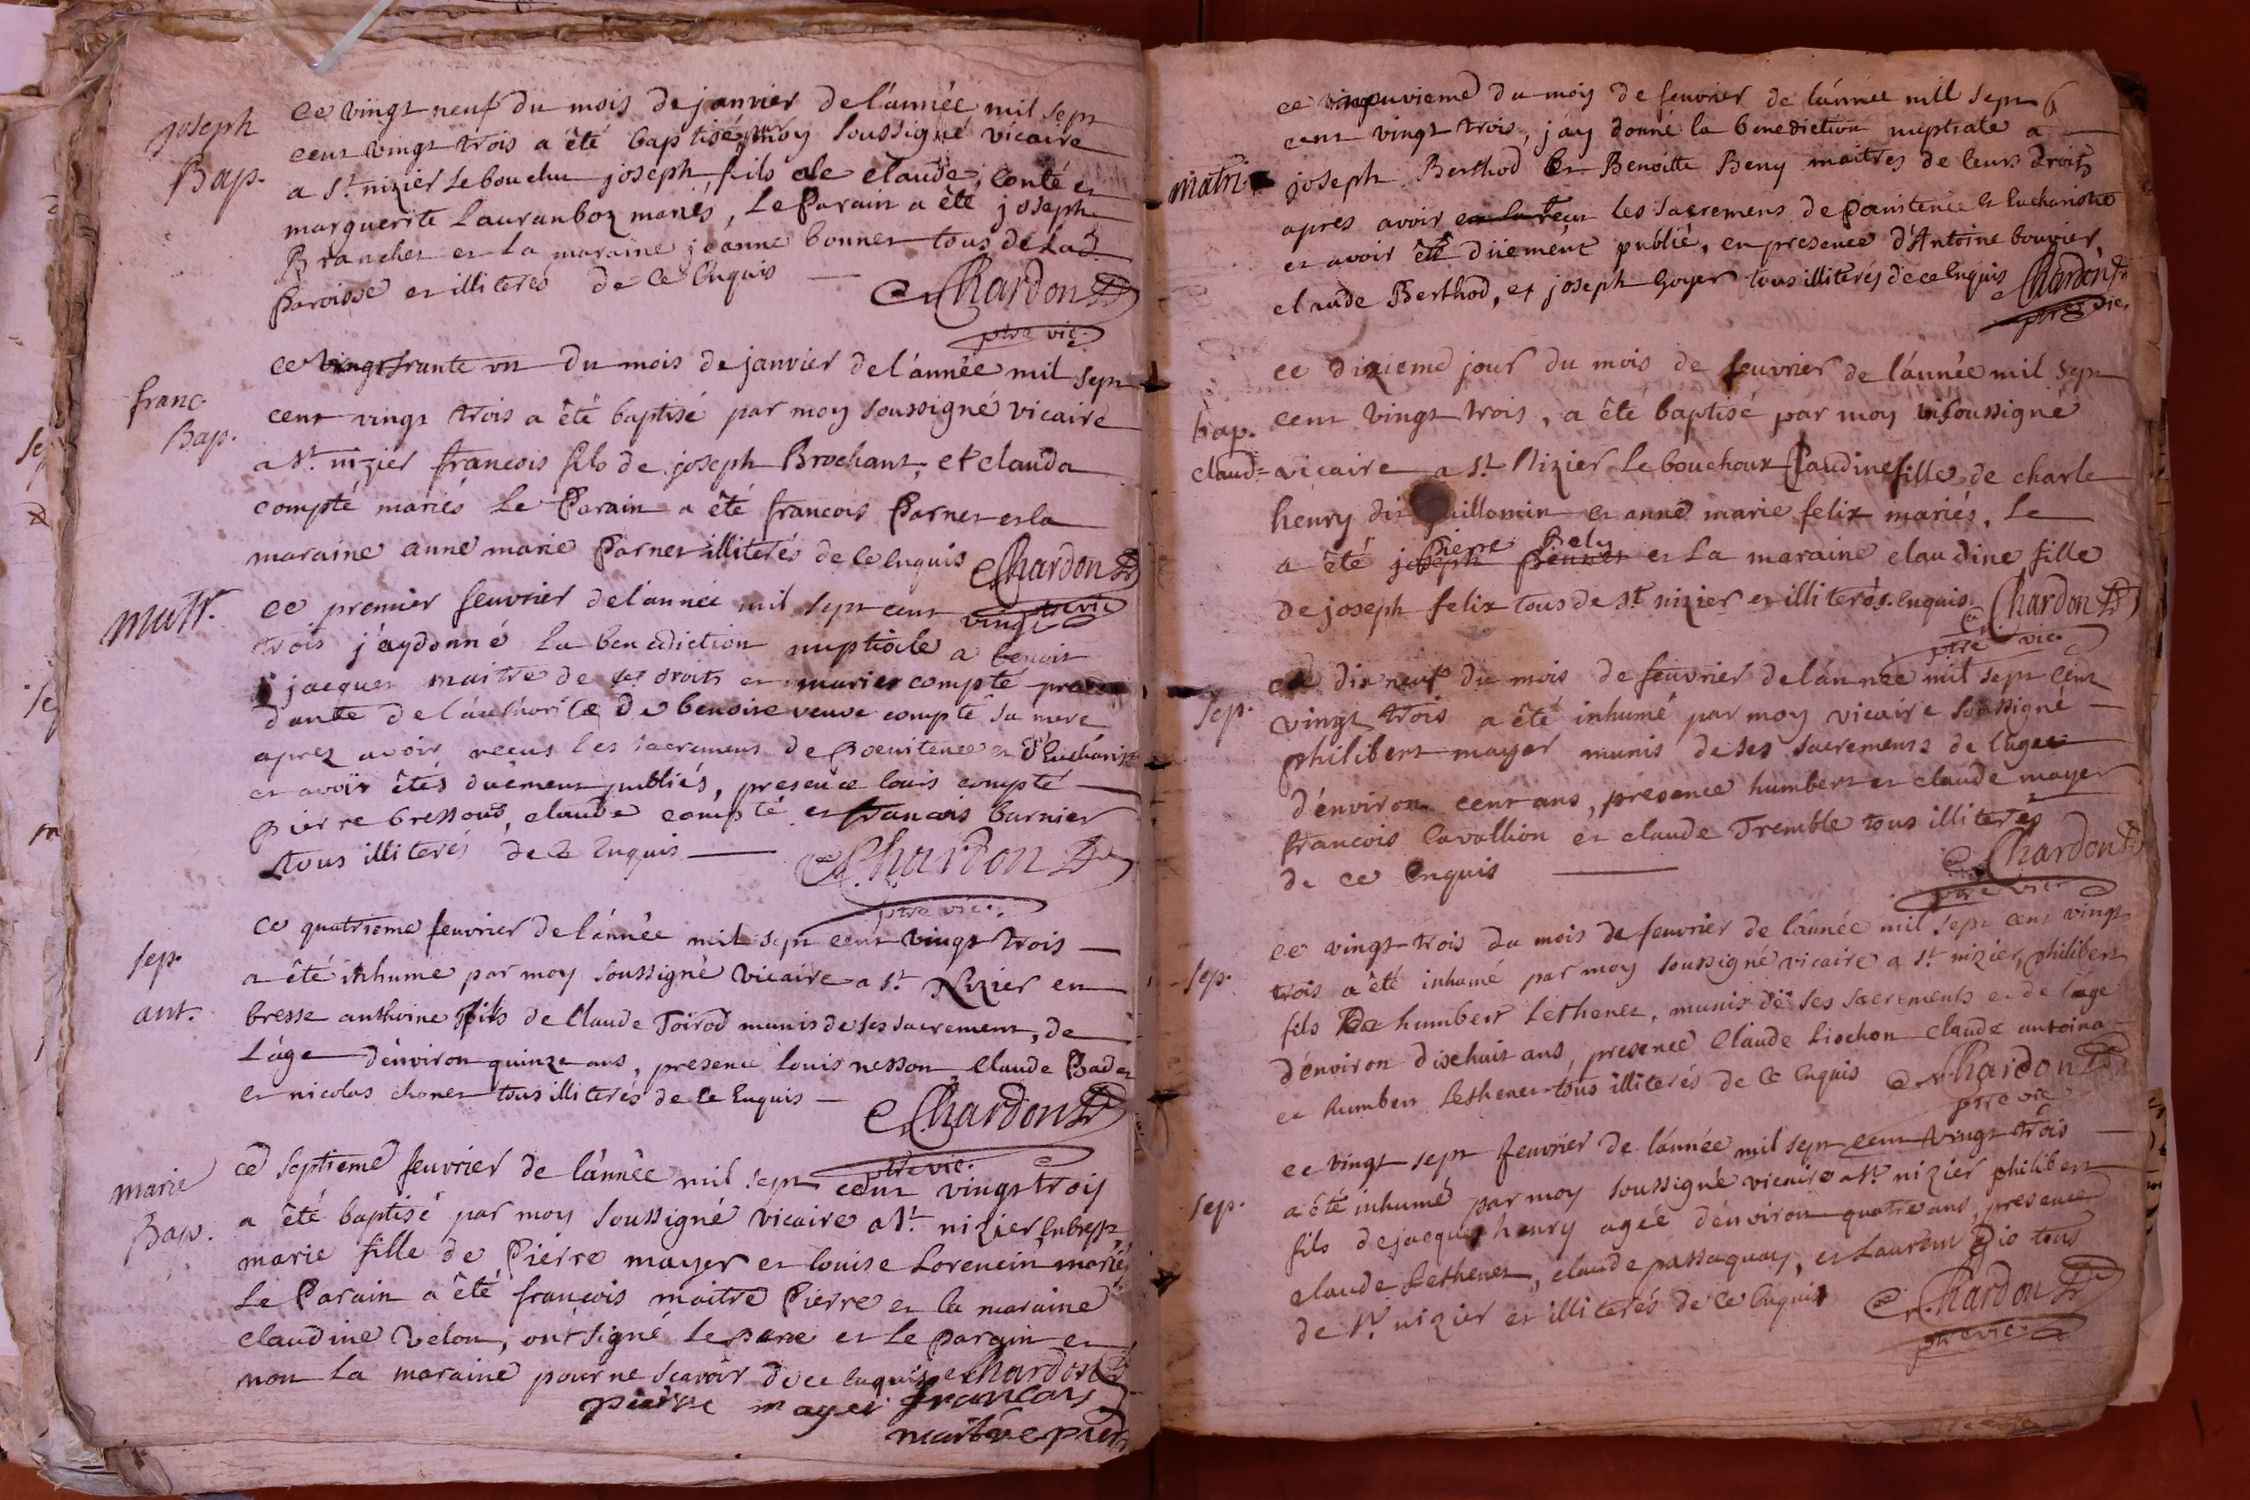 joseph
Bap.
ce vingt neuf du mois de janvier de l'année mil sept
cent vingt trois a êté baptisé par moy soussigné vicaire
a St. nizier le bouchu joseph, fils de claude, conté et
marguerite Lauranboz mariés, Le Parain a êté joseph
Branchet et La maraine jeanne bonnet tous de La d.
Paroisse et illiterés de ce Enquis
Chardon
ptre vic.
franc.
Bap.
ce trante un du mois de janvier de l'année mil sept
cent vingt trois a êté baptisé par moy soussigné vicaire
a St. nizier francois fils de joseph Brochant, et clauda
compté mariés Le Parain a êté francois Parnet et la
maraine anne marie Parnet illiterés de ce Enquis Chardon
ptre vic
matr.
ce premier feuvrier de l'annee mil sept cent vingt
trois j'ay donné La benediction nuptiale a benoit
jacquet maitre de ses droits et marier compté
dante de l'authorité de benoite veuve compté sa mere
aprez avoir recus les sacremens de Poenitence et d'Eucharist.
et avoir êtés duement publiés, presence louis compté
pierre bressoud, claude compté et francois burnier
tous illiterés de ce Enquis
Chardon
ptre vic.
sep.
ant.
ce quatrieme feuvrier de l'année mil sept cent vingt trois
a êté inhumé par moy soussigné vicaire a St. Nizier en
bresse anthoine fils de Claude Toirod munis de ses sacrement, de
L'âge d'environ quinze ans, presence louis nesson, Claude Badet
et nicolas chonet tous illiterés de ce Enquis
Chardon
ptre vic.
marie
Bap.
ce septieme feuvrier de l'année mil sept cent vingt trois
a êté baptisé par moy soussigné vicaire a St. nizier en bresse
marie fille de Pierre mayer et louise Lorencin mariés
Le Parain a êté francois maitre Pierre et la maraine
claudine velon, ont signé Le pere et Le parain et
non La maraine pour ne scavoir de ce enquise Chardon
pierre mayer francois
maitre pierre
matri.
ce neuvieme du moy de feuvrier de l'année mil sept
cent vingt trois, j'ay donné la benediction nuptiale a
joseph Berthod et Benoitte Beny maitres de leurs droits
apres avoir recus les sacremens de Poenitence et Eucharistie
et avoir êté düement publié, en presence d'Antoine bouvier,
claude Berthod, et joseph Goyer tous illiterés de ce Enquis Chardon
ptre vic.
bap.
claud.
ce dixieme jour du mois de feuvrier de l'année mil sept
cent vingt trois, a êté baptisé par moy soussigné
vicaire a St. Nizier Le bouchoux Claudine fille de charle
henry dit guillomin et anne marie felix mariés. Le
a êté Pierre Bely et La maraine claudine fille
de joseph felix tous de St. nizier et illiterés. Enquis Chardon
ptre vic.
sep.
ce dix neuf du mois de feuvrier de l'année mil sept cent
vingt trois a êté inhumé par moy vicaire soussigné
philibert mayer munis de ses sacrements de l'agee
d'environ cent ans, présence humbert et claude mayer
francois Cavallion et claude Tremble tous illiterés
de ce Enquis
Chardon
ptre vic.
sep.
ce vingt trois du mois de feuvrier de l'année mil sept cent vingt
trois a êté inhumé par moy soussigné vicaire a St. nizier, philibert
fils De humbert Lethenet, munis de ses sacrements et de l'age
d'environ dischuit ans, presence Claude Liochon Claude antoina
et humbert Lethenet tous illiterés de ce Enquis Chardon
ptre vic
sep.
ce vingt sept feuvrier de l'année mil sept cent vingt trois
a êté inhumé par moy soussigné vicaire a St. nizier philibert
fils de jacque henry agée d'environ quatre ans, presence
claude Lethenet, claude passaquay, et Laurent Dio tous
de St. nizier et illiterés de ce Enquis Chardon
ptre vic.